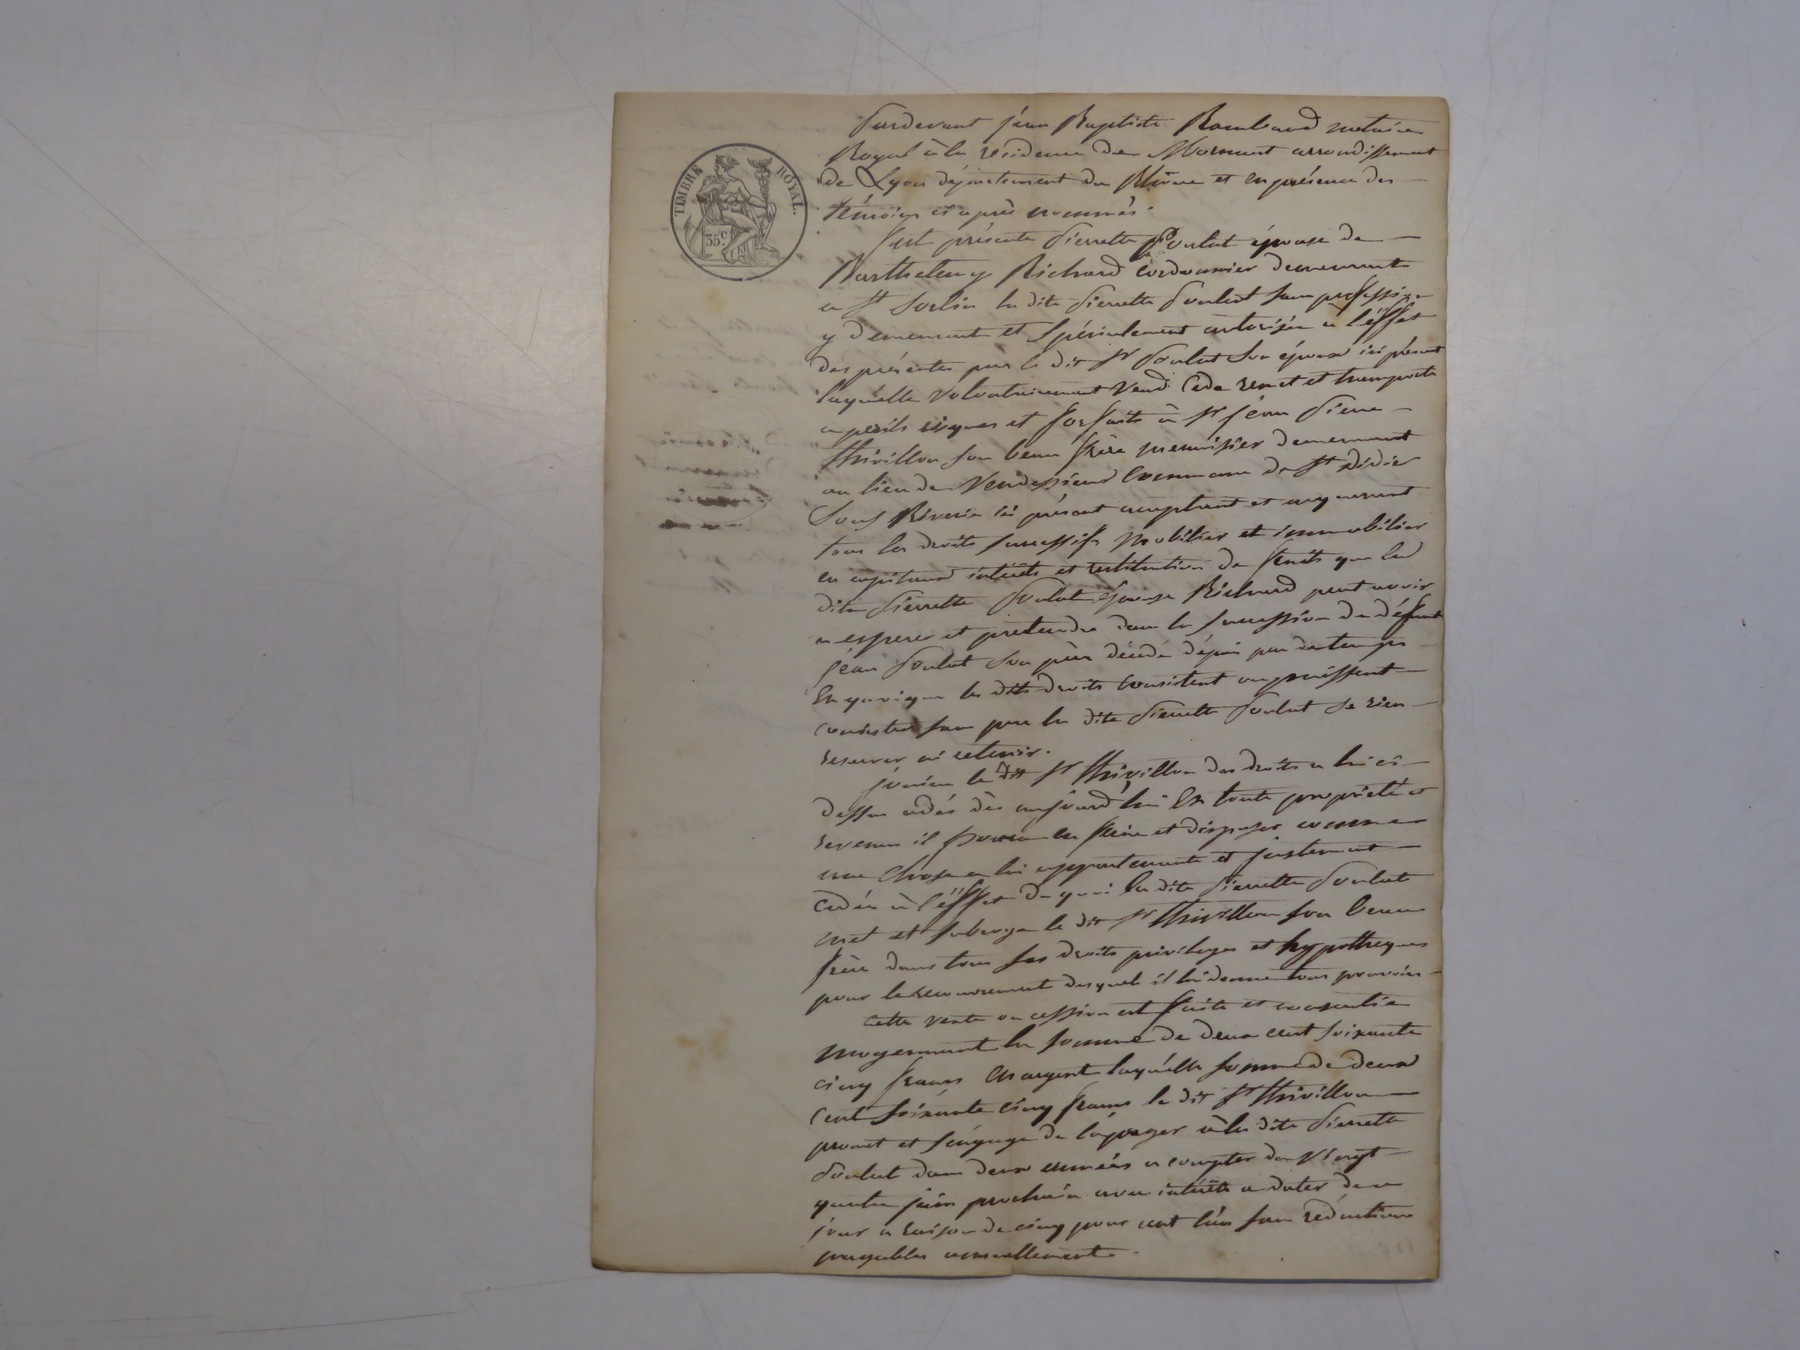 TIMBRE ROYAL.
35 c.
Pardevant jéan Baptiste Rambaud notaire
Royal à la residence de Mornant arrondissement
de Lyon département du Rhône et en présence des
témoins ci après nommés.
fut présente Pierrette Poulat épouse de
Barthelemy Richard cordonnier demeurant
a St Sorlin la dite Pierrette Poulat sans profession
y demeurant et spécialement autorisée a l'éffet
des présentes par le dit Sr Poulat son époux ici présent
laquélle volontairement vend cede remet et transporte
a périls risques et forfaits à Sr jéan Pierre
thivillon son beau frère menuisier demeurant
au lieu de Commune de St Didier
Sous Riverie ici présent acceptant et acquerant
tous les droits successifs mobilier et immobilier
en capitaux intérêts et restitution de fruits que la
dite Pierrette Poulat épouse Richard peut avoir
a esperer et pretendre dans la succession de défunt
jéan Poulat son père décédé dépuis peu de temps
En quoi que les dits droits consistent ou puissent
consister sans par la dite Pierrette Poulat se rien
reserver ni retenir.
jouira le dit Sr thivillon des droits a lui ci
dessus cedés dès aujourd'hui En toute propriété et
revenu il pourra en faire et disposer comme
une chose a lui appartenante et justement
cedée à l'éffet de quoi la dite Pierrette Poulat
met et subroge le dit Sr thivillon son beau
frère dans tous ses droits privileges et hypotheques
pour le recouvrement desquels il lui donne tous pouvoirs
Cette vente ou cession est faite et consentie
moyennant la somme de deux cent soixante
cinq francs En argent laquélle somme de deux
cent soixante cinq francs le dit Sr thivillon
promet et s'engage de la payer à la dite Pierrette
Poulat dans deux années a compter du vingt
quatre juin prochain avec intérêts a dater de ce
jour a raison de cinq pour cent l'an sans réduction
payables annuellement.